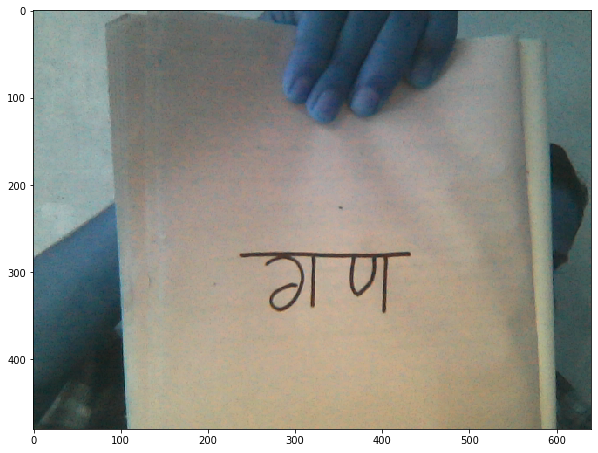 0
100
200
गण
300
400
0 100 200 300 400 500 600